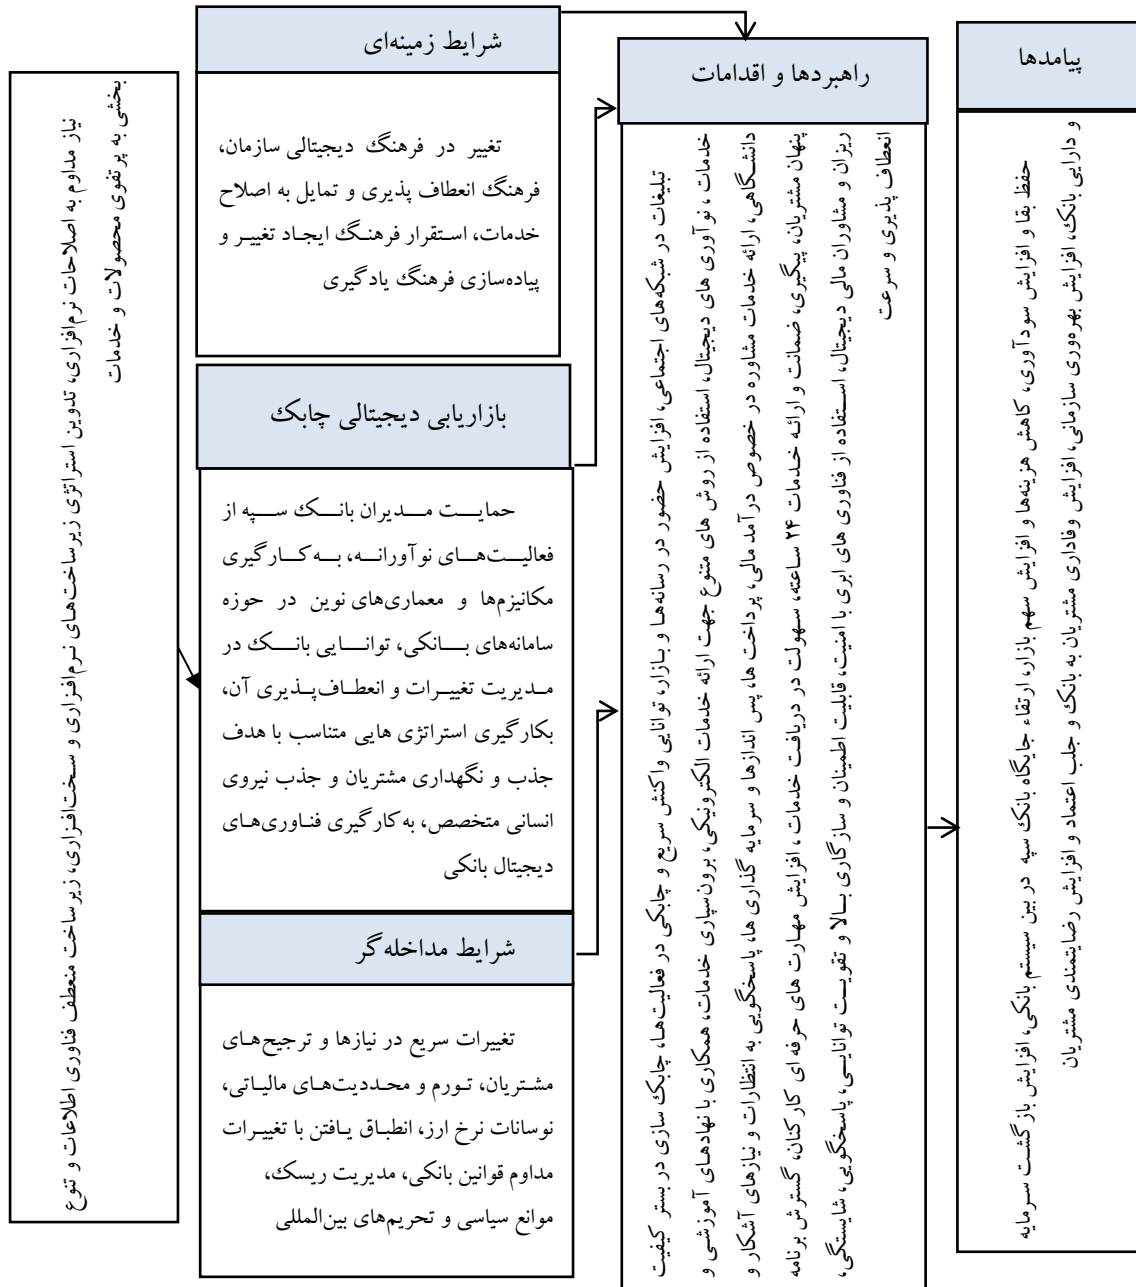 شرایط زمینه‌ای
تغییر در فرهنگ دیجیتالی سازمان،
فرهنگ انعطاف پذیری و تمایل به اصلاح
خدمات، استقرار فرهنگ ایجاد تغییر و
پیاده‌سازی فرهنگ یادگیری
نیاز مداوم به اصلاحات نرم‌افزاری، تدوین استراتژی زیرساخت‌های نرم‌افزاری و سخت‌افزاری، زیرساخت منعطف فناوری اطلاعات و تنوع
بخشی به پرتفوی محصولات و خدمات
بازاریابی دیجیتالی چابک
حمایت مدیران بانک سپه از
فعالیت‌های نوآورانه، به کارگیری
مکانیزم‌ها و معماری‌های نوین در حوزه
سامانه‌های بانکی، توانایی بانک در
مدیریت تغییرات و انعطاف‌پذیری آن،
بکارگیری استراتژی هایی متناسب با هدف
جذب و نگهداری مشتریان و جذب نیروی
انسانی متخصص، به‌کارگیری فناوری‌های
دیجیتال بانکی
شرایط مداخله‌گر
تغییرات سریع در نیازها و ترجیح‌های
مشتریان، تورم و محددیت‌های مالیاتی،
نوسانات نرخ ارز، انطباق یافتن با تغییرات
مداوم قوانین بانکی، مدیریت ریسک،
موانع سیاسی و تحریم‌های بین‌المللی
راهبردها و اقدامات
تبلیغات در شبکه‌های اجتماعی، افزایش حضور در رسانه‌ها و بازار، توانایی واکنش سریع و چابکی در فعالیت‌ها، چابک سازی در بستر کیفیت
خدمات، نوآوری های دیجیتال، استفاده از روش های متنوع جهت ارائه خدمات الکترونیکی، برون‌سپاری خدمات، همکاری با نهادهای آموزشی و
دانشگاهی، ارائه خدمات مشاوره در خصوص درآمد مالی، پرداخت ها، پس اندازها و سرمایه گذاری ها، پاسخگویی به انتظارات و نیازهای آشکار و
پنهان مشتریان، پیگیری، ضمانت و ارائه خدمات ۲۴ ساعته، سهولت در دریافت خدمات، افزایش مهارت های حرفه ای کارکنان، گسترش برنامه
ریزان و مشاوران مالی دیجیتال، استفاده از فناوری های ابری با امنیت، قابلیت اطمینان و سازگاری بالا و تقویت توانایی، پاسخگویی، شایستگی،
انعطاف پذیری و سرعت
پیامدها
حفظ بقا و افزایش سودآوری، کاهش هزینه‌ها و افزایش سهم بازار، ارتقاء جایگاه بانک سپه در بین سیستم بانکی، افزایش بازگشت سرمایه
و دارایی بانک، افزایش بهره‌وری سازمانی، افزایش وفاداری مشتریان به بانک و جلب اعتماد و افزایش رضایتمندی مشتریان